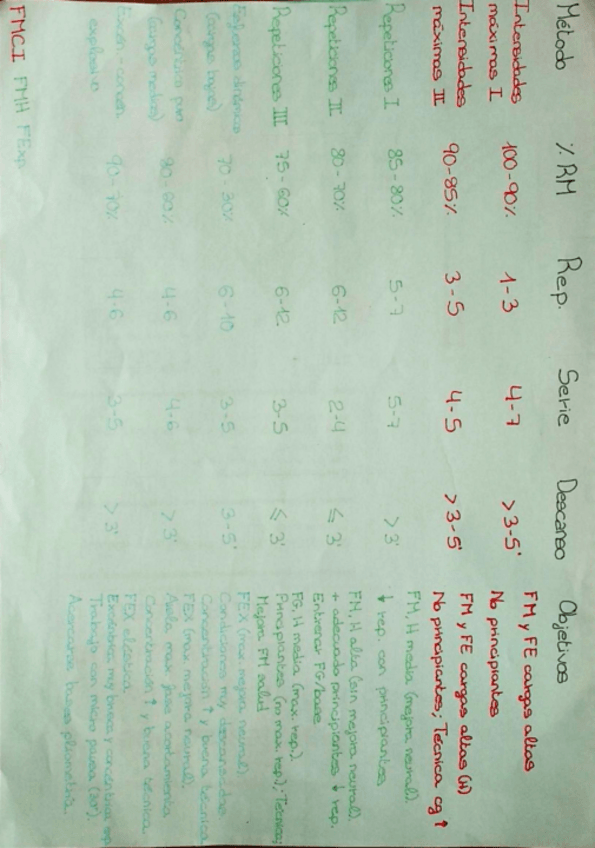 Método % RM Rep. Serie Descanso Objetivos
Intensidades máximas I 100-90% 1-3 4-7 >3-5' FM y FE cargas altas
No principiantes
Intensidades máximas II 90-85% 3-5 4-5 >3-5' FM y FE cargas altas (H)
No principiantes; Técnica cg ↑
Repeticiones I 85-80% 5-7 5-7 >3' FM, H media (mejora neural).
↓ rep. con principiantes
Repeticiones II 80-70% 6-12 2-4 ≤ 3' FM, H alta (sin mejora neural).
+ adecuado principiantes ↓ rep.
Entrenar FG/base
Repeticiones III 75-60% 6-12 3-5 ≤ 3' FG, H media (max. rep.)
Principiantes (no max. rep.); Técnica;
Mejora FM salud
Esfuerzo dinámico (cargas bajas) 70-30% 6-10 3-5 3-5' FEX (max mejora neural)
Condiciones muy descansadas
Concentración ↑ y buena técnica
Concéntrico puro (cargas medias) 80-60% 4-6 4-6 >3' FEX (max mejora neural).
Aisla max fase acortamiento
Concentración ↑ y buena técnica
explosivo 90-70% 4-6 3-5 >3' FEX elástica.
Excéntrica muy breve y concéntrica
Trabajo con micro pausa
Acercarse bases pliometría.
FMCI FMH FExp